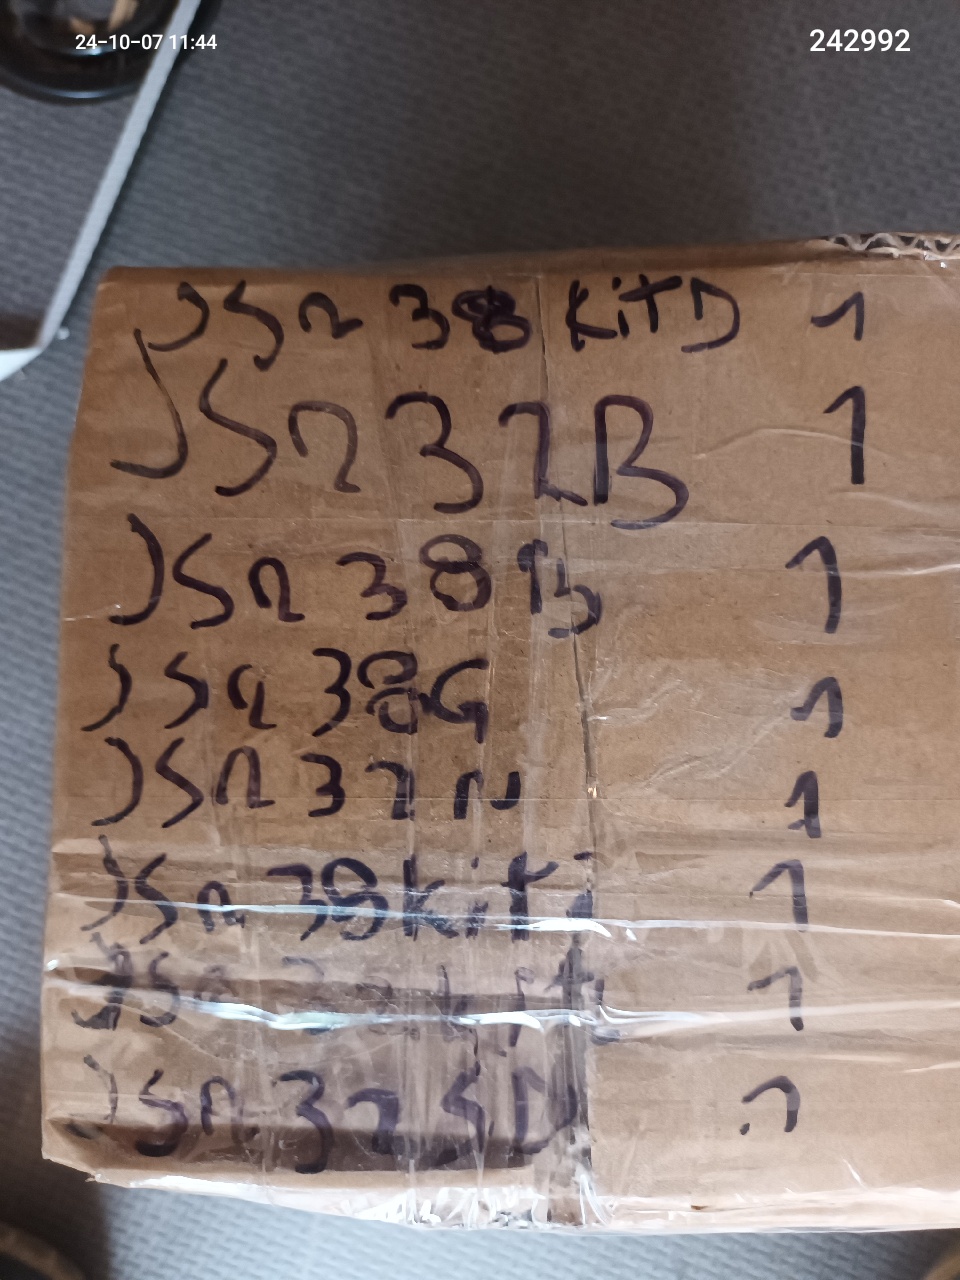 24-10-07 11:44
242992
JSn 38 KiTD 1
JSn 32B 1
JSn 38 B 1
JSn 38G 1
JSn 32 N 1
JSn 38 kiti 1
JSn 1
JSn 32SD